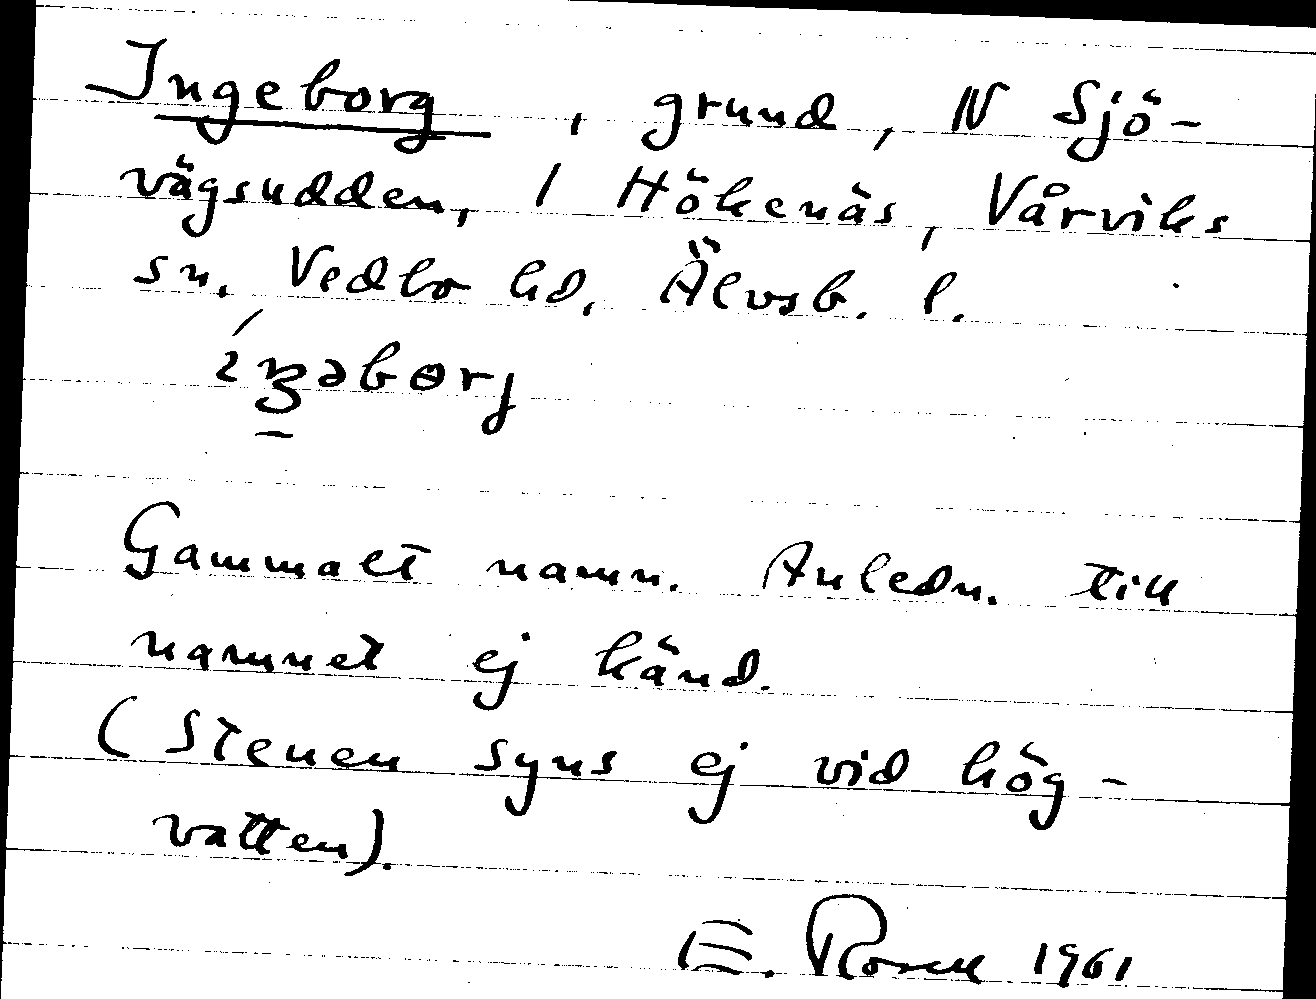 Ingeborg, grund, N Sjö-
vägsudden, 1 Hökenäs, Vårviks
sn, Vedbo hd, Älvsb. l.
íŋəbɵrj
Gammalt namn. Anledn. till
namnet ej känd.
(Stenen syns ej vid hög-
vatten).
E. Rosell 1961